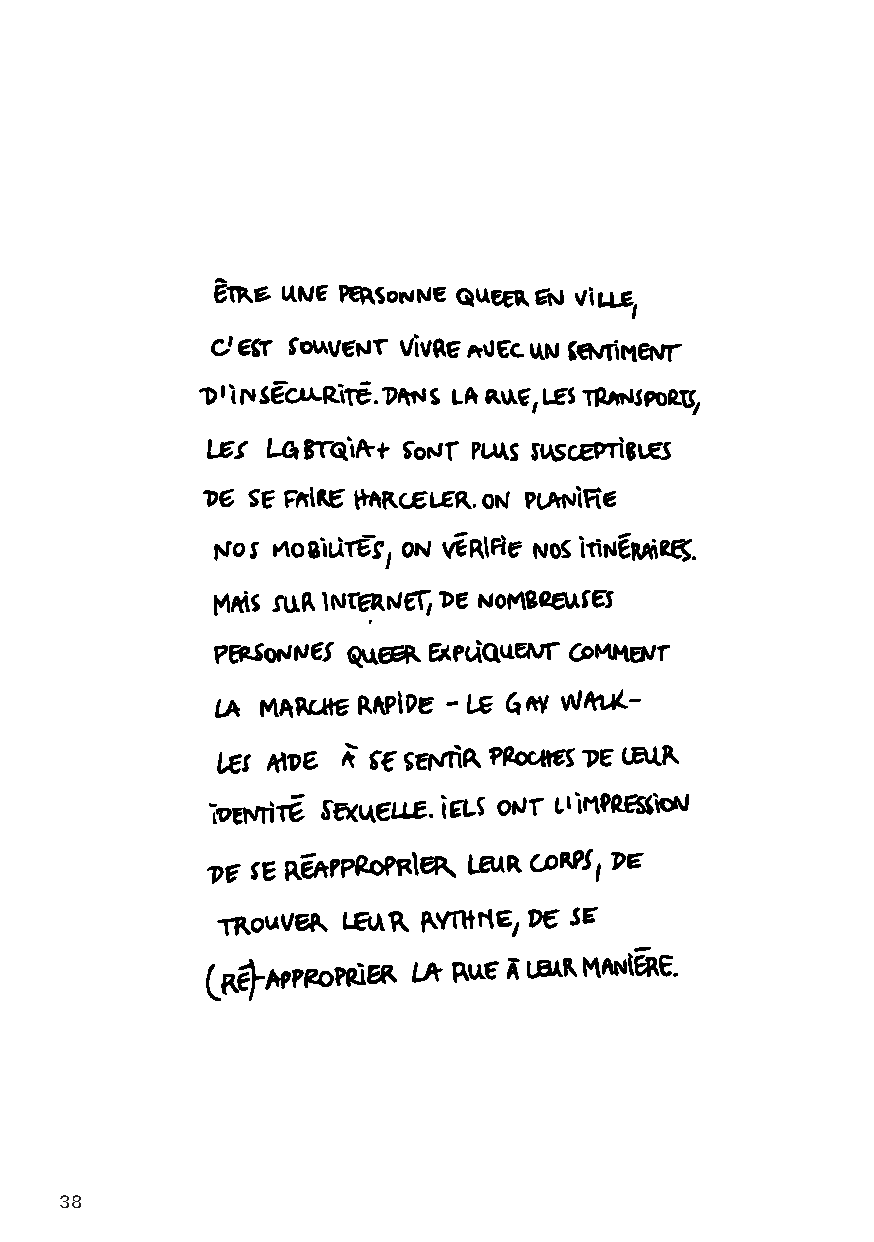 ÊTRE UNE PERSONNE QUEER EN ViLLE,
C'EST SOUVENT ViVRE AVEC UN SENTiMENT
D'iNSÉCURiTÉ. DANS LA RUE, LES TRANSPORTS,
LES LGBTQiA+ SONT PLUS SUSCEPTiBLES
DE SE FAIRE HARCELER. ON PLANiFiE
NOS MOBiLiTÉS, ON VÉRIFIE NOS iTiNÉRAiRES.
MAiS SUR INTERNET, DE NOMBREUSES
PERSONNES QUEER EXPLiQUENT COMMENT
LA MARCHE RAPiDE - LE GAY WALK-
LES AIDE À SE SENTiR PROCHES DE LEUR
iDENTiTÉ SEXUELLE. iELS ONT L'iMPRESSiON
DE SE RÉAPPROPRIER LEUR CORPS, DE
TROUVER LEUR RYTHME, DE SE
(RÉ)-APPROPRiER LA RUE À LEUR MANIÈRE.
38